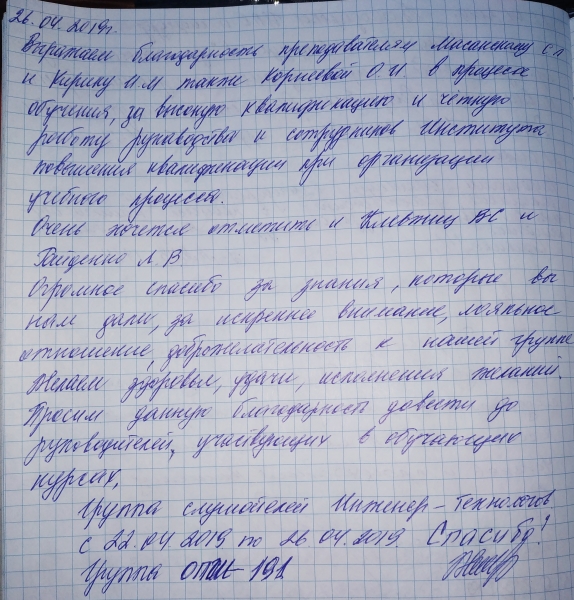 26.04.2019г.
Выражаем благодарность преподавателям Мисанскому С Л
и Кирику И.М, также Корнеевой О И в процессе
обучения, за высокую квалификацию и чёткую
работу руководства и сотрудников Института
повышения квалификации при организации
учебного процесса.
Очень хочется отметить и Клевтиц ВС и
Гайденко Л. В
Огромное спасибо за знания, которые вы
нам дали, за искреннее внимание, лояльное
отношение, доброжелательность к нашей группе
Желаем здоровья, удачи, исполнения желаний.
Просим данную благодарность довести до
руководителей, участвующих в обучающих
курсах.
Группа слушателей Инженер-технологов
с 22.04.2019 по 26.04.2019. Спасибо!
Группа 191